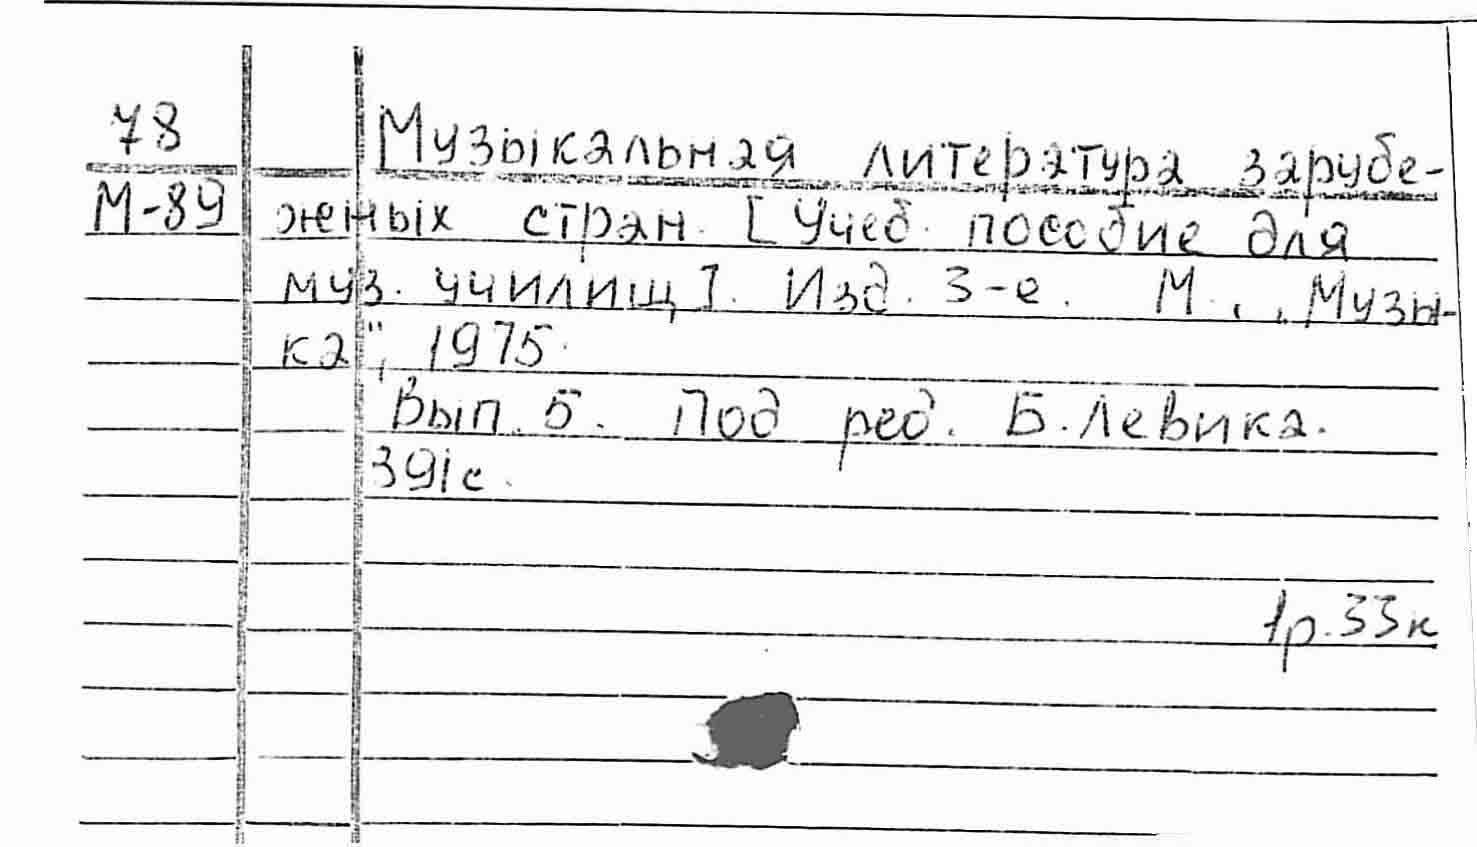 78
М-89
Музыкальная литература зарубе-
жных стран. [Учеб. пособие для
муз. училищ]. Изд. 3-е. М., „Музы-
ка", 1975.
Вып. 5. Под ред. Б. Левика.
391с.
1р. 33к